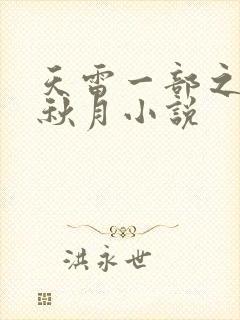 天雷一部之
秋月小説
洪永世